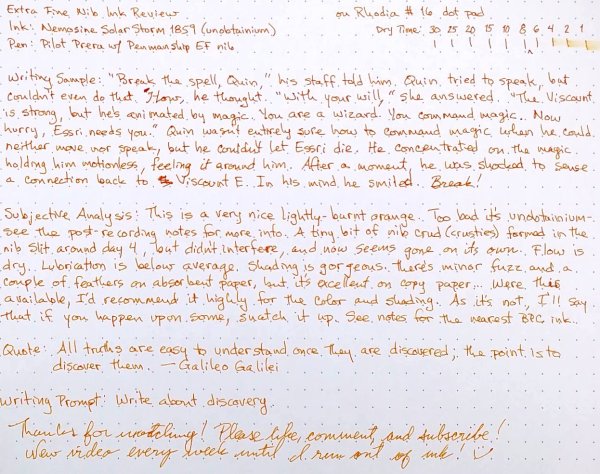 Extra Fine Nib Ink Review on Rhodia #16 dot pad
Ink: Nemosine Solar Storm 1859 (unobtainium) Dry Time: 30 25 20 15 10 8 6 4 2 1
Pen: Pilot Prera w/ Penmanship EF nib
Writing Sample: "Break the spell, Quin," his staff told him. Quin tried to speak, but
couldn't even do that. How, he thought. "With your will," she answered. "The Viscount
is strong, but he's animated by magic. You are a wizard. You command magic. Now
hurry, Essri needs you." Quin wasn't entirely sure how to command magic when he could
neither move nor speak, but he couldn't let Essri die. He concentrated on the magic
holding him motionless, feeling it around him. After a moment, he was shocked to sense
a connection back to Viscount E. In his mind, he smiled. Break!
Subjective Analysis: This is a very nice lightly-burnt orange. Too bad it's unobtainium-
see the post-recording notes for more info. A tiny bit of nib crud (crusties) formed in the
nib slit around day 4, but didn't interfere, and now seems gone on its own. Flow is
dry. Lubrication is below average. Shading is gorgeous. There's minor fuzz and a
couple of feathers on absorbent paper, but it's excellent on copy paper. Were this
available, I'd recommend it highly for the color and shading. As it's not, I'll say
that if you happen upon some, snatch it up. See notes for the nearest BPC ink.
Quote: All truths are easy to understand once they are discovered; the point is to
discover them. —Galileo Galilei
Writing Prompt: Write about discovery.
Thanks for watching! Please like, comment, and subscribe!
New video every week until I run out of ink!